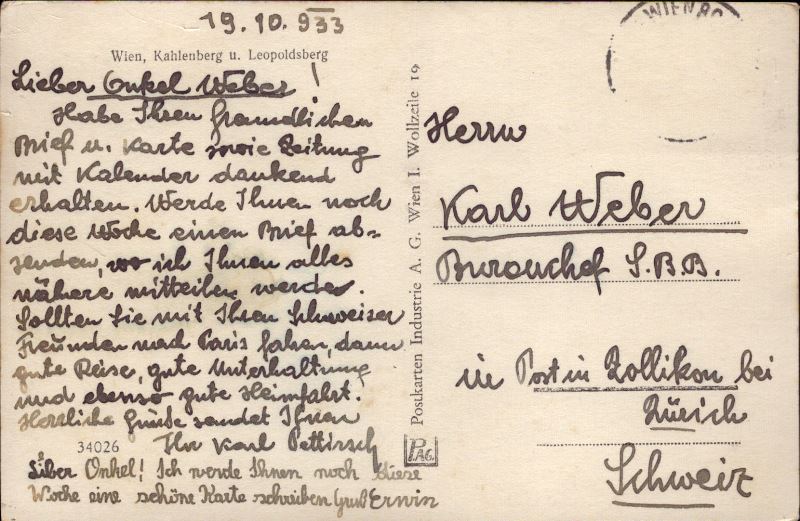 19.10.933
Wien, Kahlenberg u. Leopoldsberg
Lieber Onkel Weber!
Habe Ihren freundlichen
Brief u. Karte sowie Zeitung
mit Kalender dankend
erhalten. Werde Ihnen noch
diese Woche einen Brief ab-
senden, wo ich Ihnen alles
nähere mitteilen werde.
Sollten Sie mit Ihren Schweizer
Freunden nach Paris fahren, dann
gute Reise, gute Unterhaltung
und ebenso gute Heimfahrt!
Herzliche Grüße sendet Ihnen
34026
Ihr Karl Pettirsch
Lieber Onkel! Ich werde Ihnen noch diese
Woche eine schöne Karte schreiben Gruß Erwin
Postkarten Industrie A. G. Wien I. Wollzeile 19
P.A.G.
WIEN 80
Herrn
Karl Weber
Burouchef S.B.B.
in Post in Zollikon bei
Zürich
Schweiz